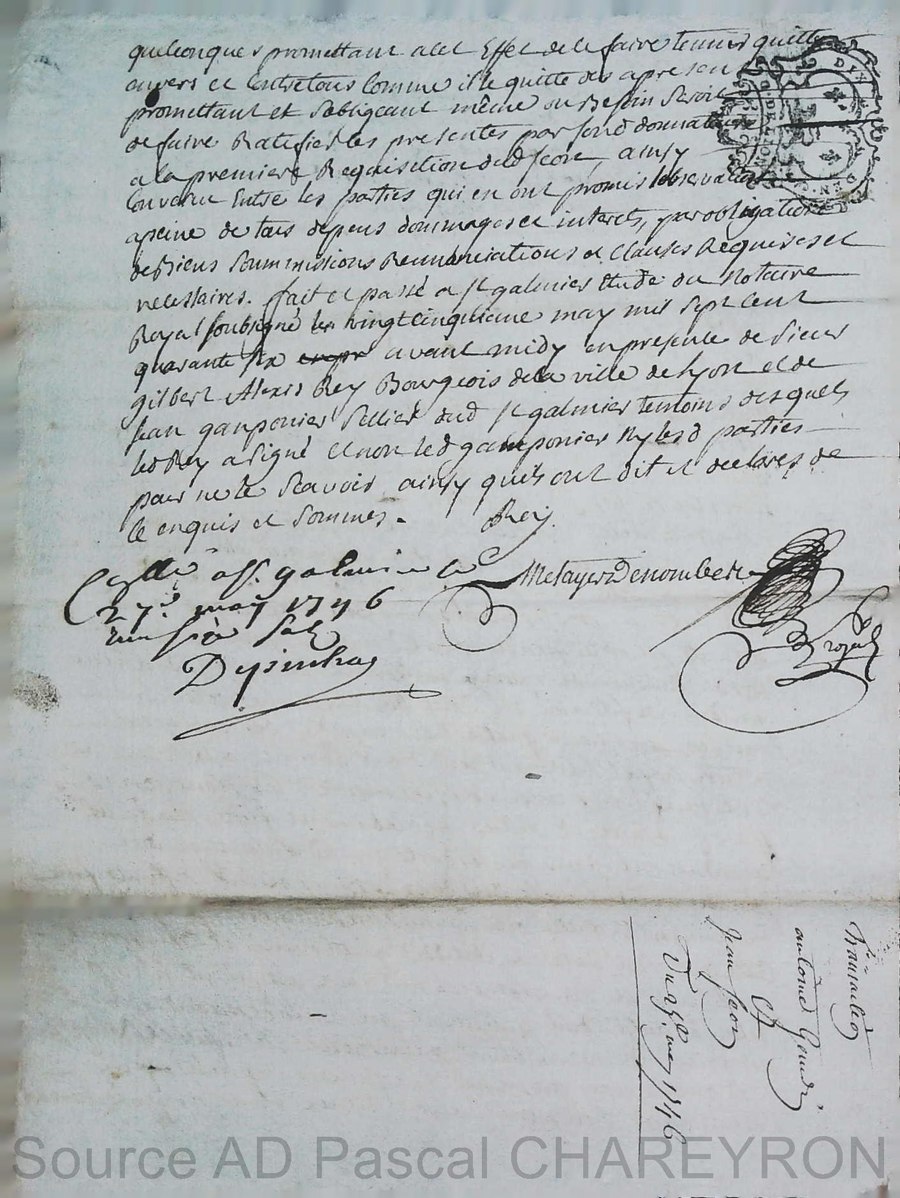 quelconques promettant a cet Effet de le faire tenir quitte
envers et Entre tous Comme il le quitte des apresent
promettant et sobligeant même ou Besoin seroit
de faire Ratifier les presentes par
a la premiere Requisition dud Jeon ainsy
Convenu Entre les parties qui en ont promis observation
apeine de tous depens dommages et interets, par obligation
de Biens Soummissions Renunciations et Clauses Requises et
necessaires. fait et passé a st galmier Etude du Notaire
Royal soubsigné le vingtcinquieme may mil sept cent
quarante six avant midy en presence de sieur
gilbert Alexis Rey Bourgeois de la ville de lyon et de
Jean ganponier Sellier dud st galmier temoins desquels
led Rey a signé et non led gamponier Ny lesd parties
pour ne le scavoir ainsy quils ont dit et declares de
ce enquis et sommes.
Rey
Metayer Denombe
Nre royal
Cllé a St. galmier le
27e may 1746
six sols
transaction
antoine
Et
jean Jeon
Du 25e may 1746
DIX DEN.
G. DE LYON
Source AD Pascal CHAREYRON